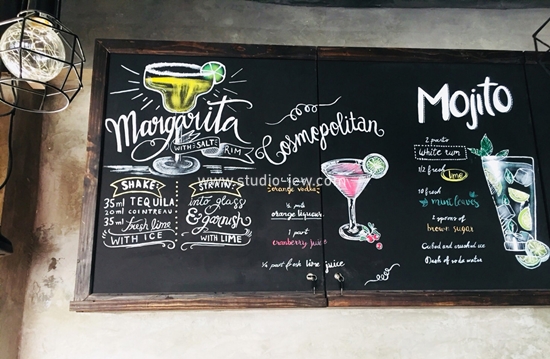 Margarita
WITH SALT
RIM
SHAKE:
35ml TEQUILA
20ml COINTREAU
35ml fresh lime
WITH ICE
STRAIN:
into glass
& garnish
WITH LIME
Cosmopolitan
orange vodka
orange liqueur
1 part
cranberry juice
part fresh lime juice
Mojito
2 parts
white rum
1/2 fresh
lime
10 fresh
mint leaves
2 spoons of
brown sugar
and crushed ice
Dash of soda water
www.studio-iew.com